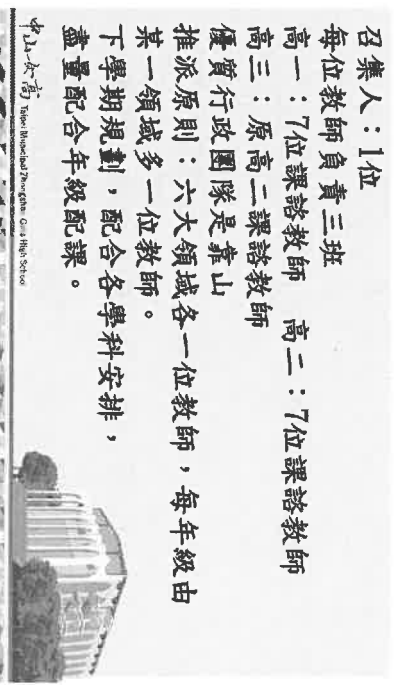 召集人：1位
每位教師負責三班
高一：7位課諮教師　高二：7位課諮教師
高三：原高二課諮教師
優質行政團隊是靠山
推派原則：六大領域各一位教師，每年級由
某一領域多一位教師。
下學期規劃，配合各學科安排，
盡量配合年級配課。
中山女高 Taipei Municipal Zhongshan Girls High School